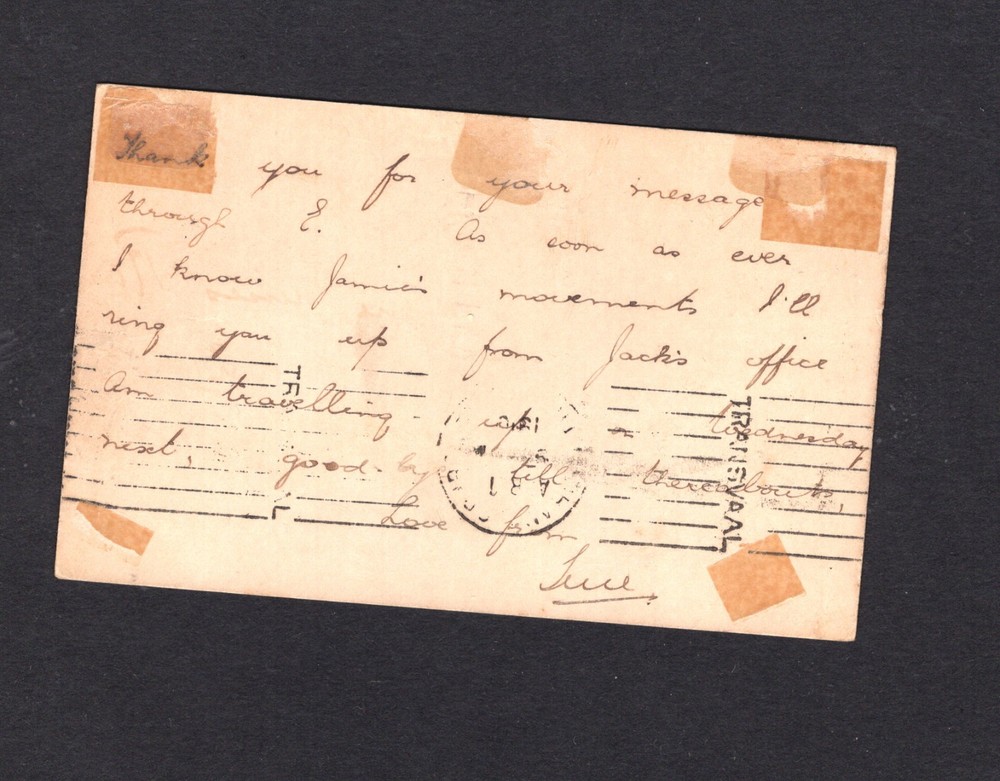 Thank you for your message
through E. As soon as ever
I know Jamie's movements I'll
ring you up from Jack's office
Am travelling up on Wednesday
next, good-bye till thereabouts,
Love from
TRANSVAAL